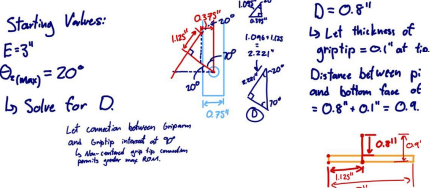 Starting Values:
E=3"
θε(max) = 20°
↳ Solve for D.
Let connection between Griparm
and Griptip intersect at 90°
↳ Non-centered grip tip connection
permits greater max R.O.M.
0.375"
20°
1.125"
70°
20°
0.75"
0.375"
1.096+1.125
=
2.221"
2.221"
20°
70°
D
D = 0.8"
↳ Let thickness of
griptip = 0.1" at tip.
Distance between pi
and bottom face of
= 0.8" + 0.1" = 0.9.
0.8"
0.9"
1.125"